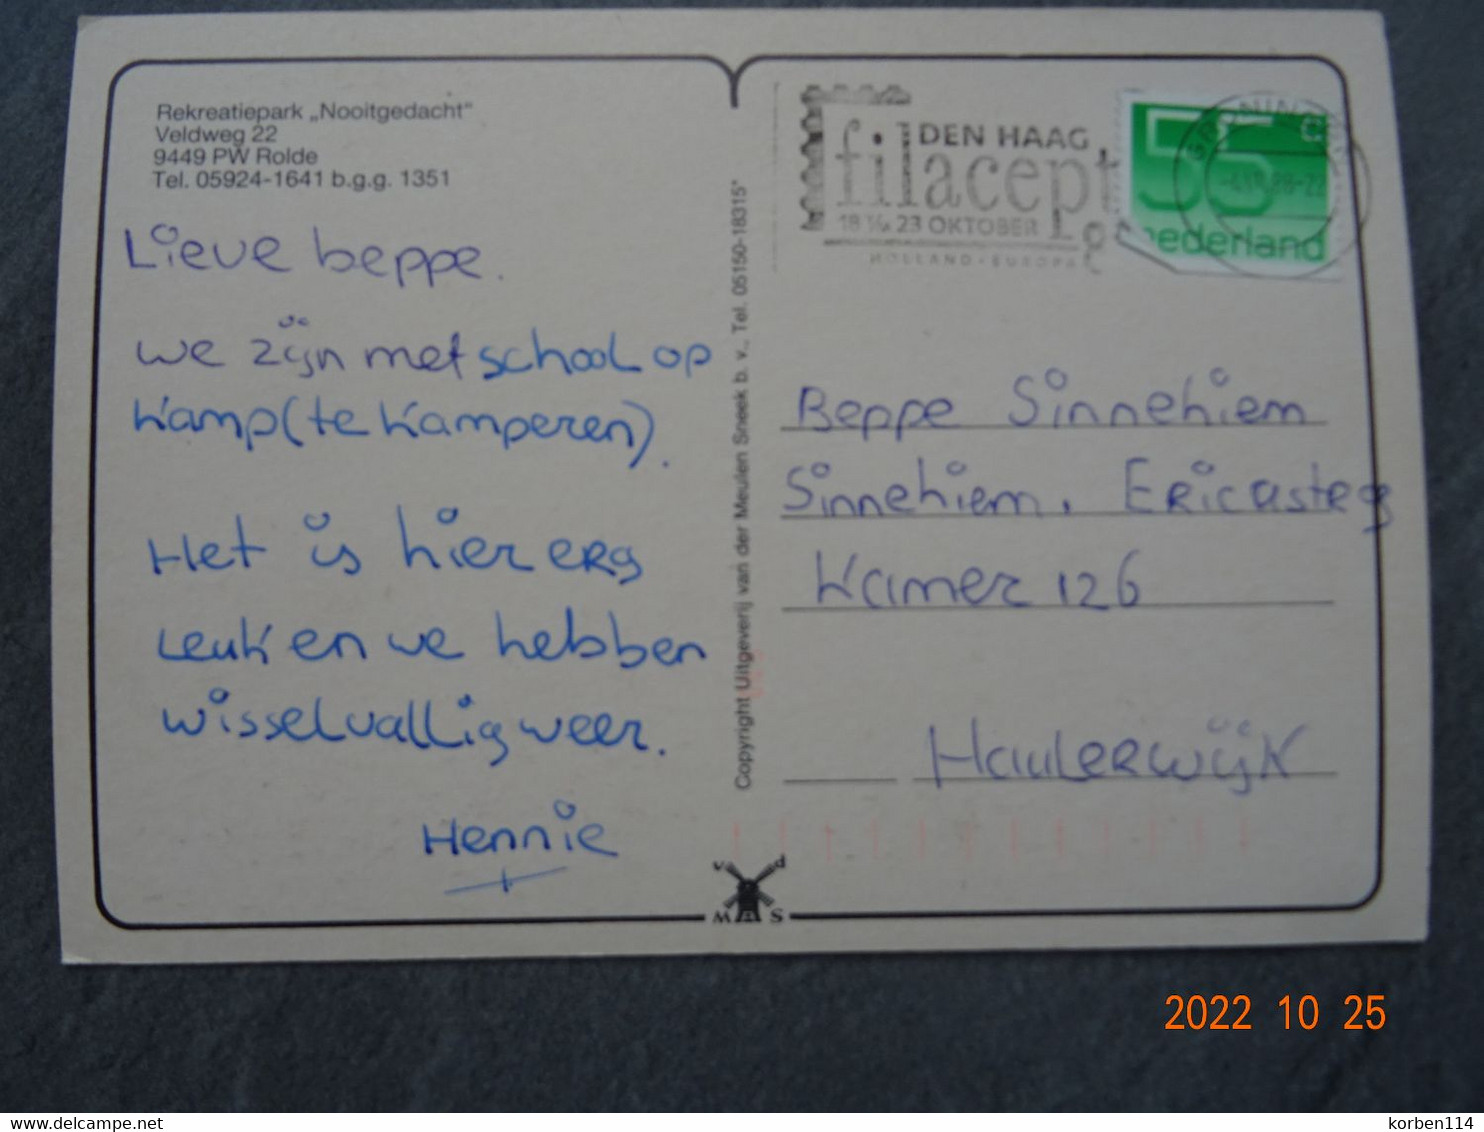 Rekreatiepark „Nooitgedacht"
Veldweg 22
9449 PW Rolde
Tel. 05924-1641 b.g.g. 1351
Lieve beppe.
we zijn met school op
kamp (te kamperen).
Het is hier erg
leuk en we hebben
wisselvallig weer.
Hennie
Copyright Uitgeverij van der Meulen Sneek b.v., Tel. 05150-18315*
DEN HAAG
filacept
18 t/m 23 OKTOBER
HOLLAND - EUROPA
55 c
nederland
GRONINGEN
Beppe Sinnehiem
Sinnehiem, Ericasteeg
Kamer 126
Haulerwijk
v d
M S
2022 10 25
https://www.delcampe.net
korben114